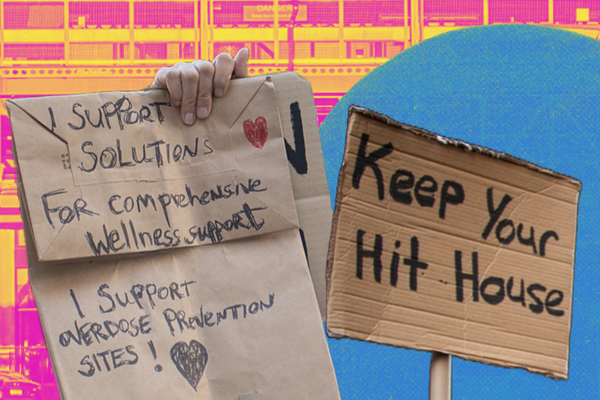 DANGER
I SUPPORT
SOLUTIONS
FOR COMPREHENSIVE
Wellness support
I SUPPORT
OVERDOSE PREVENTION
SITES!
Keep Your
Hit House